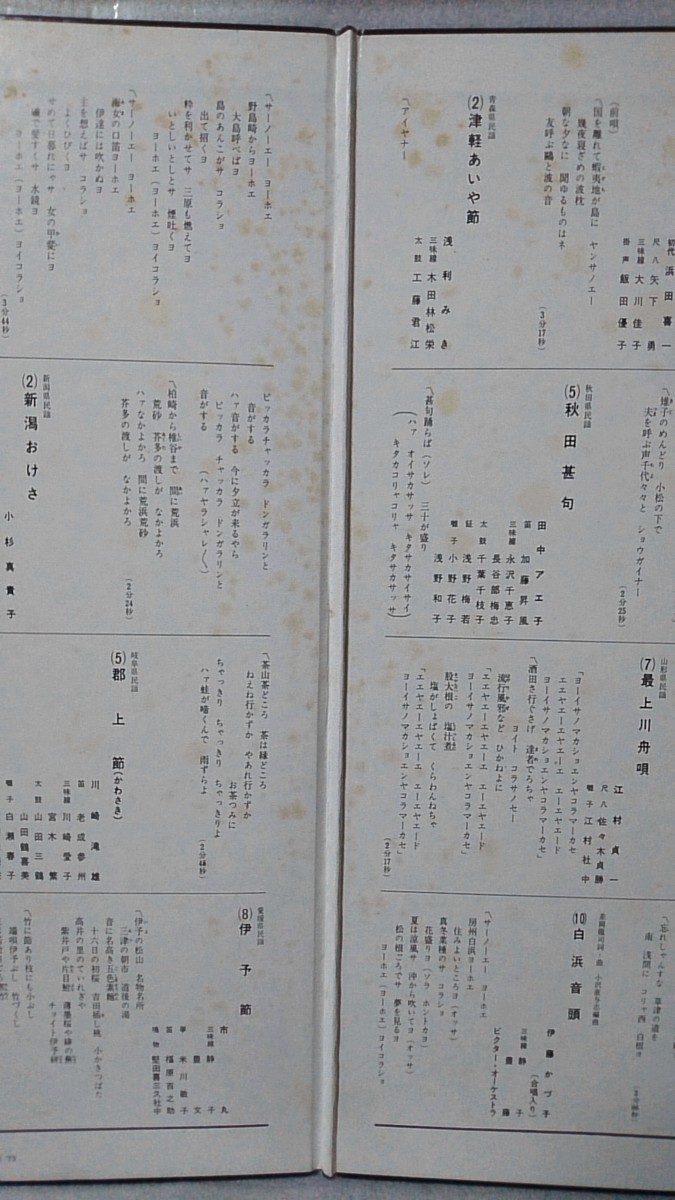 (前唄)
〽国を離れて蝦夷地が島に ヤンサノエー
幾夜寝ざめの波枕
朝な夕なに 聞ゆるものはネ
友呼ぶ鷗と波の音
初代 浜田喜一
尺八 矢下勇
三味線 大川佳子
掛声 飯田優子
(3分17秒)
青森県民謡
(2)津軽あいや節
浅利みき
三味線 木田林松栄
太鼓 工藤君江
〽アイヤナー
〽雉子のめんどり 小松の下で
夫を呼ぶ声千代々々と ショウガイナー
(2分25秒)
秋田県民謡
(5)秋田甚句
田中アエ子
笛 加藤昇風
三味線 永沢千恵子
長谷部梅忠
太鼓 千葉千枝子
鉦 浅野梅若
囃子 小野花子
浅野和子
〽甚句踊らば(ソレ) 三十が盛り
(ハァ オイサカサッサ キタカサカサイサイ
キタカコリャコリャ キタサカサッサ)
山形県民謡
(7)最上川舟唄
江村貞一
尺八 佐々木貞勝
囃子 江村社中
「ヨーイサノマカショエンヤコラマーカセ
エエヤエーエヤエーエ エーエヤエード
ヨーイサノマカショエンヤコラマーカセ」
〽酒田さ行ぐさげ 達者でろちゃ
ヨイト コラサノセー
流行風邪など ひかねよに
「エエヤエーエヤエーエ エーエヤエード
ヨーイサノマカショエンヤコラマーカセ」
股大根の 塩汁煮
塩がしょぱくて くらわんねちゃ
「エエヤエーエヤエーエ エーエヤエード
ヨーイサノマカショエンヤコラマーカセ」
(2分17秒)
〽忘れしゃんすな 草津の道を
南 浅間に コリャ西 白根ヨ
(10)白浜音頭
伊藤かづ子
(合唱入り)
三味線 静子
豊藤
ビクター・オーケストラ
〽サーノーエー ヨーホエ
房州白浜ヨーホエ
住みよいところヨ(オッサ)
真冬菜種のサ コラショ
花盛りヨ(ソラ ホントカヨ)
夏は涼風サ 沖から吹いてヨ(オッサ)
松の根ごろでサ 夢を見るヨ
ヨーホエ(ヨーホエ)ヨイコラショ
〽サーノーエー ヨーホエ
野島崎からヨーホエ
大島呼べばヨ
島のあんこがサ コラショ
出て招くヨ
粋を利かせてサ 三原も燃えてヨ
いとしいとしとサ 煙吐くヨ
ヨーホエ(ヨーホエ)ヨイコラショ
〽サーノーエー ヨーホエ
海女の口笛ヨーホエ
伊達には吹かぬヨ
主を想えばサ コラショ
よくひびくヨ
せめて日暮れにゃサ 女の甲斐にヨ
磯で愛すくサ 水鏡ヨ
ヨーホエ(ヨーホエ)ヨイコラショ
(3分44秒)
ピッカラチャッカラ ドンガラリンと
音がする
ハァ音がする 今に夕立が来るやら
ピッカラ チャッカラ ドンガラリンと
音がする (ハァヤラシャレ〳〵)
〽柏崎から椎谷まで 間に荒浜
荒砂 芥多の渡しが なかよかろ
ハァなかよかろ 間に荒浜荒砂
芥多の渡しが なかよかろ
(2分24秒)
新潟県民謡
(2)新潟おけさ
小杉真貴子
〽茶山茶どころ 茶は縁どころ
ねえね行かずか やあれ行かずか
お茶つみに
ちゃっきり ちゃっきり ちゃっきりよ
ハァ蛙が啼くんで 雨ずらよ
(2分48秒)
岐阜県民謡
(5)郡上節(かわさき)
川崎滝雄
笛 老成参州
三味線 川崎愛子
宮木繁
太鼓 山田三鶴
山田鶴喜美
囃子 白瀬春子
愛媛県民謡
(8)伊予節
市丸
三味線 静子
豊文
箏 米川敏子
笛 福原百之助
鳴物 堅田喜三久社中
〽伊予の松山 名物名所
三津の朝市 道後の湯
音に名高き五色素麺
十六日の初桜 吉田挿し桃 小かきつばた
高井の里のていれぎや
紫井戸や片目鮒 薄墨桜や緋の蕪
チョイト伊予絣
〽竹に節あり枝にも小ぶし
端唄伊予ぶし 竹づくし